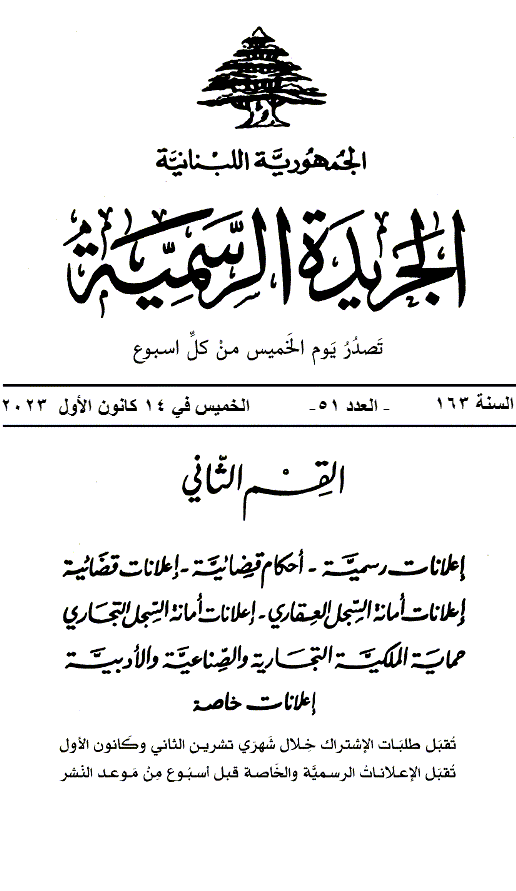 الجمهوريَّة اللبنانيَّة
الجريدة الرسميَّة
تَصدُرُ يَوم الخَميس منْ كلِّ اسبوع
السنة ١٦٣ - العدد ٥١- الخميس في ١٤ كانون الأول ٢٠٢٣
القِسْم الثّاني
إعلانات رسميَّة - أحكام قضائيَّة - إعلانات قضائية
إعلانات أمانة السِّجل العقاري - إعلانات أمانة السِّجل التجاري
حماية الملكيَّة التجارية والصِّناعيَّة والأدبيَّة
إعلانات خاصة
تُقبَل طلبَات الإشتراك خِلال شَهرَي تشرين الثاني وكَانون الأول
تُقبَل الإعلاناتُ الرسميَّة والخَاصة قبل أسبُوع مِنْ مَوعد النَشر